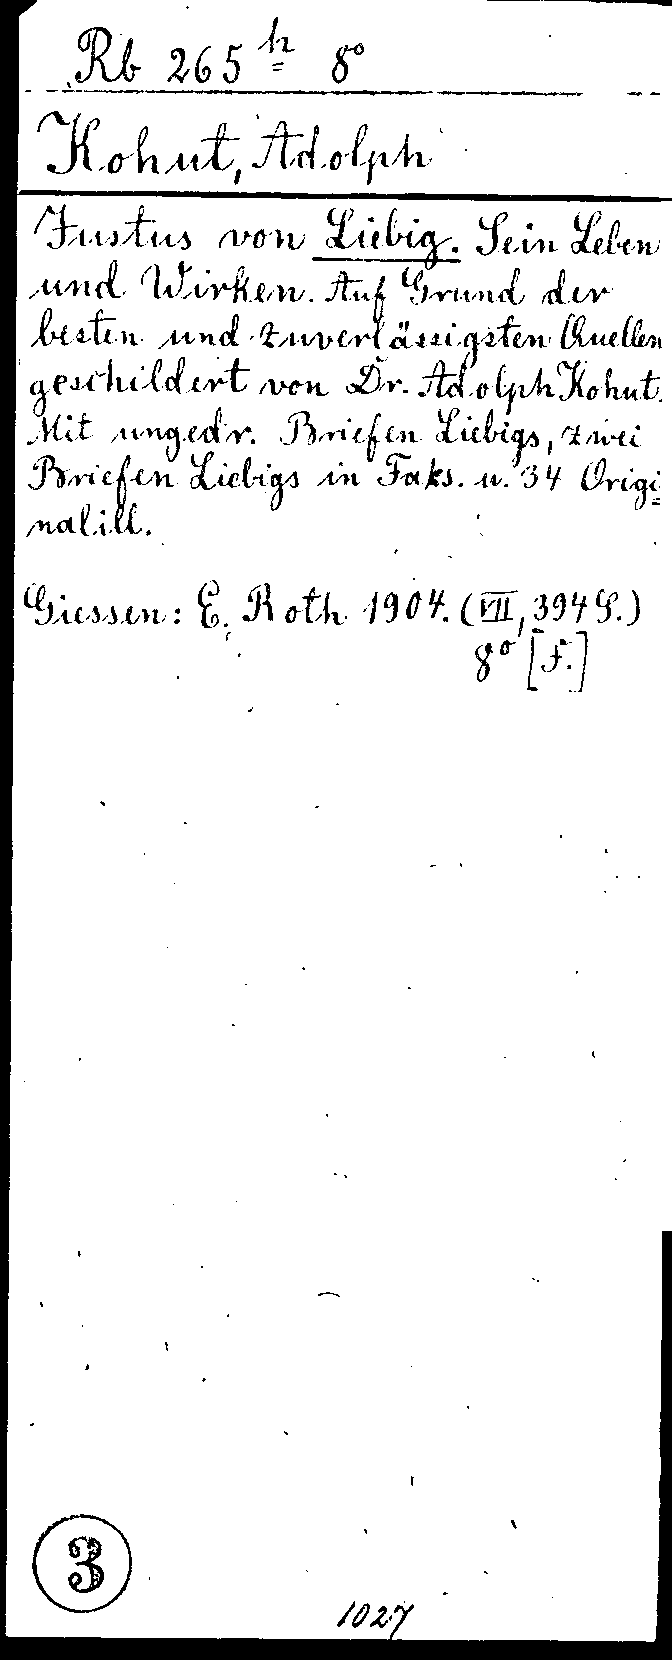 Rb 265 h 8°
Kohut, Adolph
Justus von Liebig. Sein Leben
und Wirken. Auf Grund der
besten und zuverlässigsten Quellen
geschildert von Dr. Adolph Kohut.
Mit ungedr. Briefen Liebigs, zwei
Briefen Liebigs in Faks. u. 34 Origi=
nalill.
Giessen: E. Roth 1904. (VII, 394 S.)
8° [F.]
3
1027